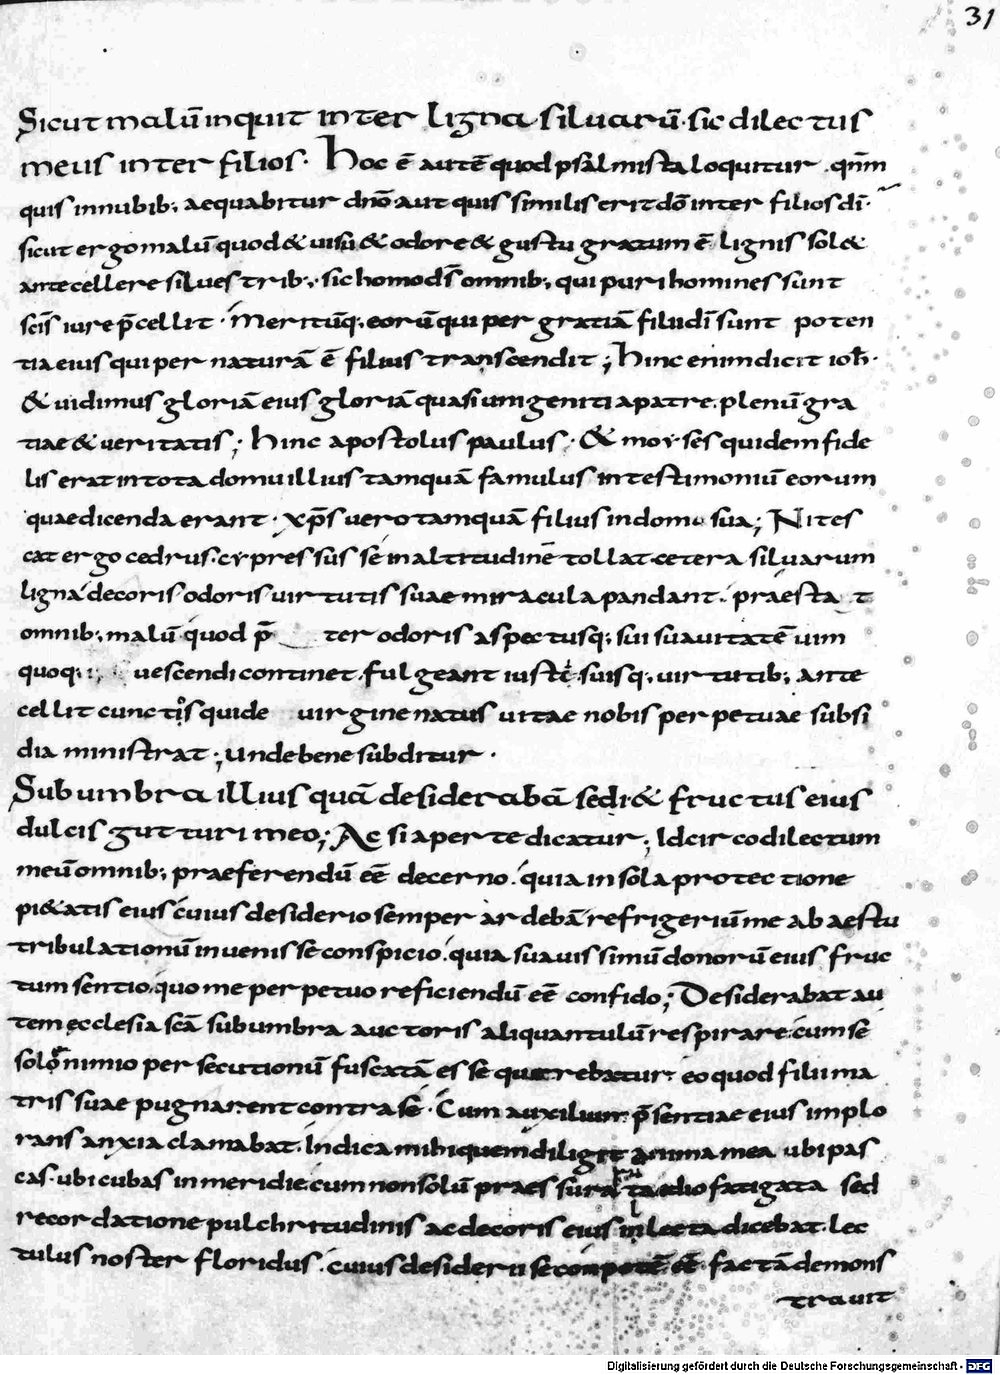 31
Sicut malū inquit inter ligna silvarū· sic dilectus
meus inter filios· Hoc ē autē quod psalmista loquitur· qnm̄
quis in nubib; aequabitur dnō aut quis similis erit dō inter filios dī·
sicut ergo malū quod & uisu & odore & gustu gratum ē lignis sol&
antecellere siluestrib;· sic homo ds̄ omnib; qui puri homines sunt
scīs iure p̄cellit· Meritūq; eorū qui per gratiā filii dī sunt poten
tia eius qui per naturā ē filius transcendit; Hinc enim dicit ioh̄·
& uidimus gloriā eius gloriā quasi unigeniti a patre· plenū gra
tiae & ueritatis; hinc apostolus paulus· & moyses quidem fide
lis erat in tota domu illius tamquā famulus in testimoniū eorum
quae dicenda erant· xp̄s uero tamquā filius in domo sua; Nites
cat ergo cedrus· cypressus se in altitudinē tollat· cetera silvarum
ligna decoris odoris uirtutis suae miracula pandant· praesta t
omnib; malū quod p̄ ter odoris aspectusq; sui suauitatē uim
quoq; uescendi continet· fulgeant iusti suisq; uirtutib; ante
cellit cunctis quide uirgine natus uitae nobis perpetuae subsi
dia ministrat; unde bene subditur·
Sub umbra illius quā desiderabā sedi & fructus eius
dulcis gutturi meo; Ac si aperte dicatur; Idcirco dilectum
meū omnib; praeferendū eē decerno· quia in sola protectione
pi&atis eius cuius desiderio semper ardebā refrigeriū me ab aestu
tribulationū inuenisse conspicio· quia suauissimū donorū eius fruc
tum sentio· quo me perpetuo reficiendū eē confido; Desiderabat au
tem ecclesia scā sub umbra auctoris aliquantulū respirare· cum se
solo nimio persecutionū fuscatā esse querebatur eo quod filii ma
tris suae pugnarent contra se· Cum auxilium p̄sentiae eius implo
rans anxia clamabat· Indica mihi quem diligit anima mea ubi pas
cas· ubi cubas in meridie· cum non solū praessura taedio fatigata sed
recordatione pulchritudinis ac decoris eius inlecta dicebat· lec
tulus noster floridus· cuius desiderii se conpotē eē factā demons
trauit
Digitalisierung gefördert durch die Deutsche Forschungsgemeinschaft - DFG